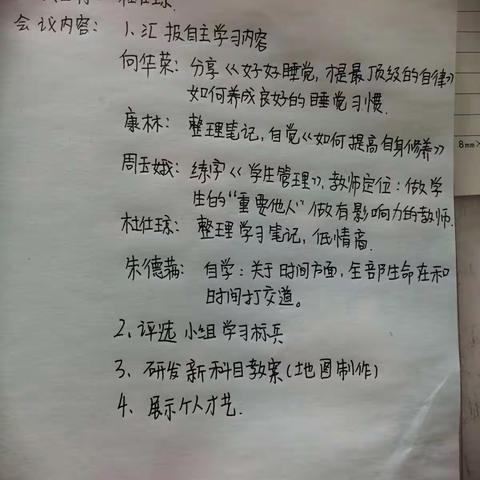 会议内容: 1、汇报自主学习内容
向华荣: 分享《好好睡觉,才是最顶级的自律》
如何养成良好的睡觉习惯.
康林: 整理笔记,自觉《如何提高自身修养》
周玉娥: 练字《学生管理》,教师定位:做学
生的“重要他人”做有影响力的教师.
杜仕琼: 整理学习笔记,低情商.
朱德 : 自学:关于时间方面,全部生命在和
时间打交道。
2、评选小组学习标兵
3、研发新科目教案(地图制作)
4、展示个人才艺.
8mm×